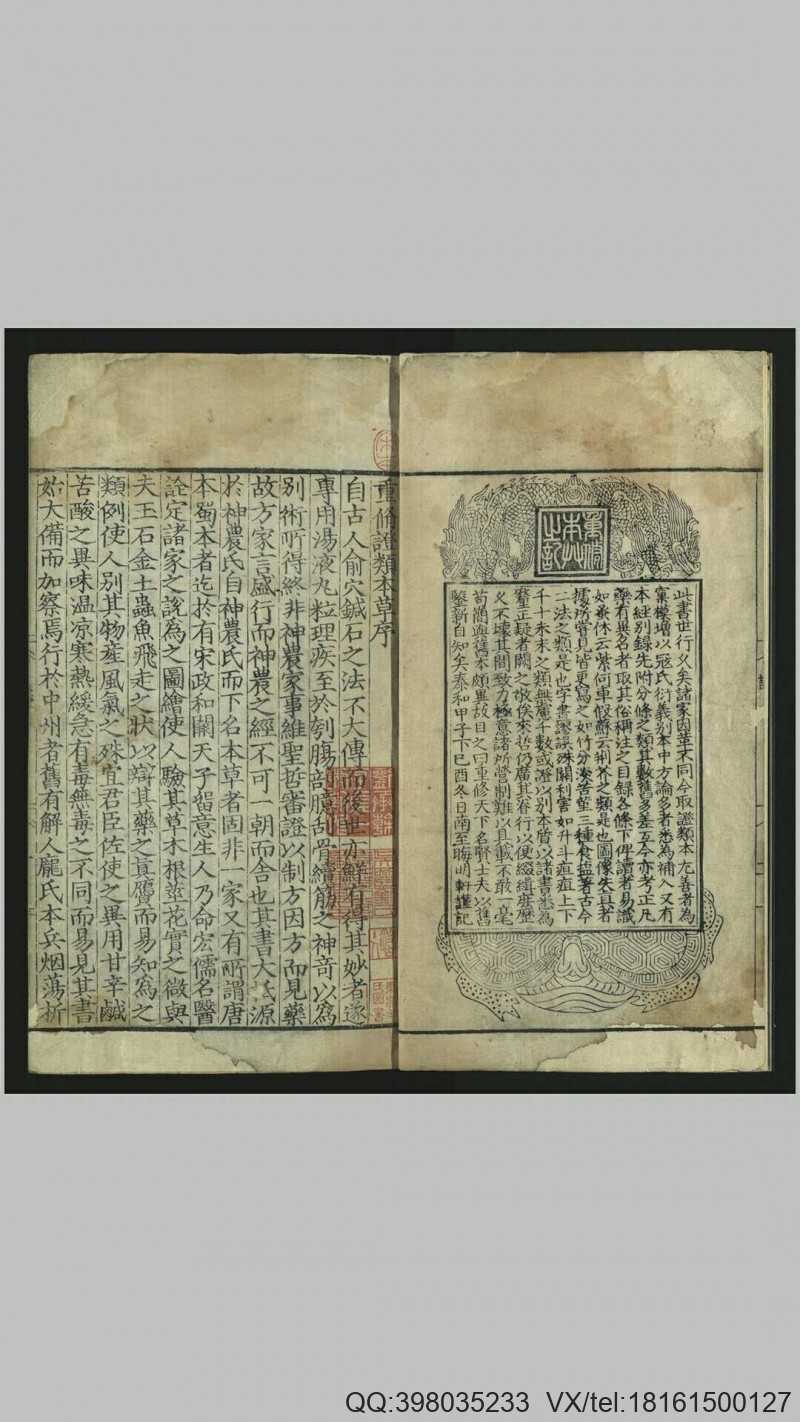 重修本艸之記
此書世行久矣諸家因革不同今取證類本尤善者為
窠模增以寇氏衍義別本中方論多者悉為補入又有
本經別錄先附分條之類其數舊多差互今亦考正凡
藥有異名者取其俗稱注之目録各條下俾讀者易識
如蚤休云紫河車假蘇云荊芥之類是也圖像失真者
據所嘗見皆更寫之如竹分淡苦堇三種食鹽著古今
二法之類是也字畫謬誤殊關利害如升斗疸疽上下
千十未末之類無慮千數或證以別本質以諸書悉為
釐正疑者闕之敬俟來哲仍廣其脊行以便綴緝庶歷
久不壞其間致力極意諸所營制難以具載不敢一毫
苟簡與舊本頗異故目之曰重修天下名賢士夫以舊
鑒新自知矣泰和甲子下己酉冬日南至晦明軒謹記
重脩證類本草序
自古人俞穴鍼石之法不大傳而後世亦鮮有得其妙者遂
專用湯液丸粒理疾至於刳腸剖臆刮骨續筋之神奇以為
別術所得終非神農家事維聖哲審證以制方因方而見藥
故方家言盛行而神農之經不可一朝而舍也其書大㧳源
於神農氏自神農氏而下名本草者固非一家又有所謂唐
本蜀本者迄於有宋政和間天子留意生人乃命宏儒名醫
詮定諸家之說為之圖繪使人驗其草木根莖花實之微與
夫玉石金土蟲魚飛走之狀以辯其藥之真贋而易知為之
類例使人別其物產風氣之殊宜君臣佐使之異用甘辛鹹
苦酸之異味溫涼寒熱緩急有毒無毒之不同而易見其書
始大備而加察焉行於中州者舊有解人龐氏本兵烟蕩析
QQ:398035233 VX/tel:18161500127